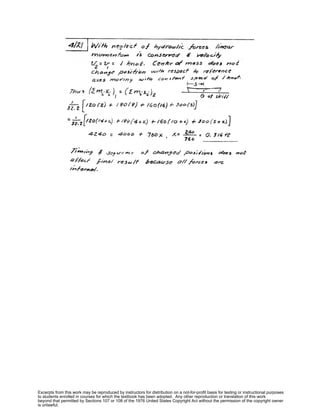 4/21 With neglect of hydraulic forces linear
momentum is conserved & velocity
v₂ = v₁ = 1 knot. Center of mass does not
change position with respect to reference
axes moving with constant speed of 1 knot.
Thus (Σmᵢxᵢ)₁ = (Σmᵢxᵢ)₂
G of skiff
1/32.2 [120(2) + 180(8) + 160(16) + 300(s)]
= 1/32.2 [120(14+x) + 180(4+x) + 160(10+x) + 300(s+x)]
4240 = 4000 + 760x, x = 240/760 = 0.316 ft
Timing & sequence of changed positions does not
affect final result because all forces are
internal.
Excerpts from this work may be reproduced by instructors for distribution on a not-for-profit basis for testing or instructional purposes
to students enrolled in courses for which the textbook has been adopted. Any other reproduction or translation of this work
beyond that permitted by Sections 107 or 108 of the 1976 United States Copyright Act without the permission of the copyright owner
is unlawful.